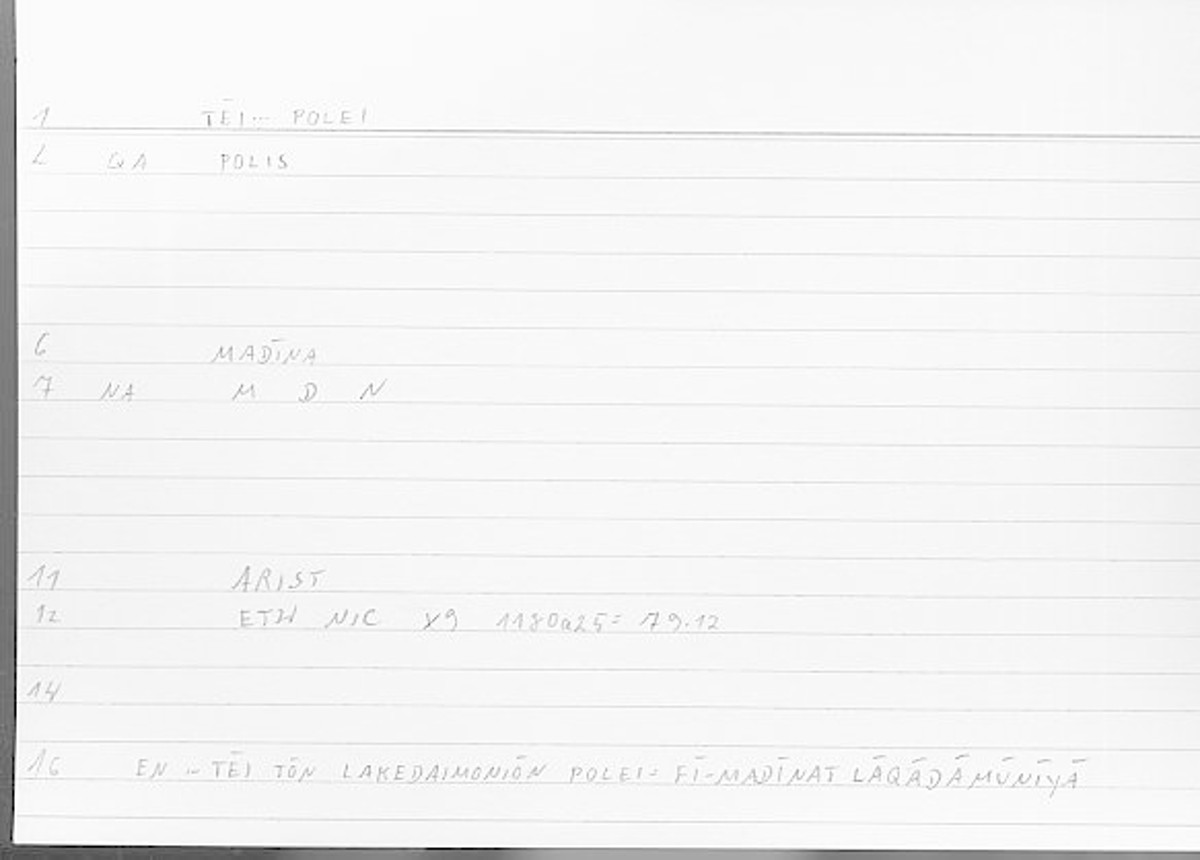 1 TĒI... POLEI
2 QA POLIS
6 MADĪNA
7 NA M D N
11 ARIST
12 ETH NIC X9 1180a25= 79.12
14
16 EN ... TĒI TŌN LAKEDAIMONIŌN POLEI= FĪ-MADĪNAT LĀQĀḎĀMŪNĪYĀ